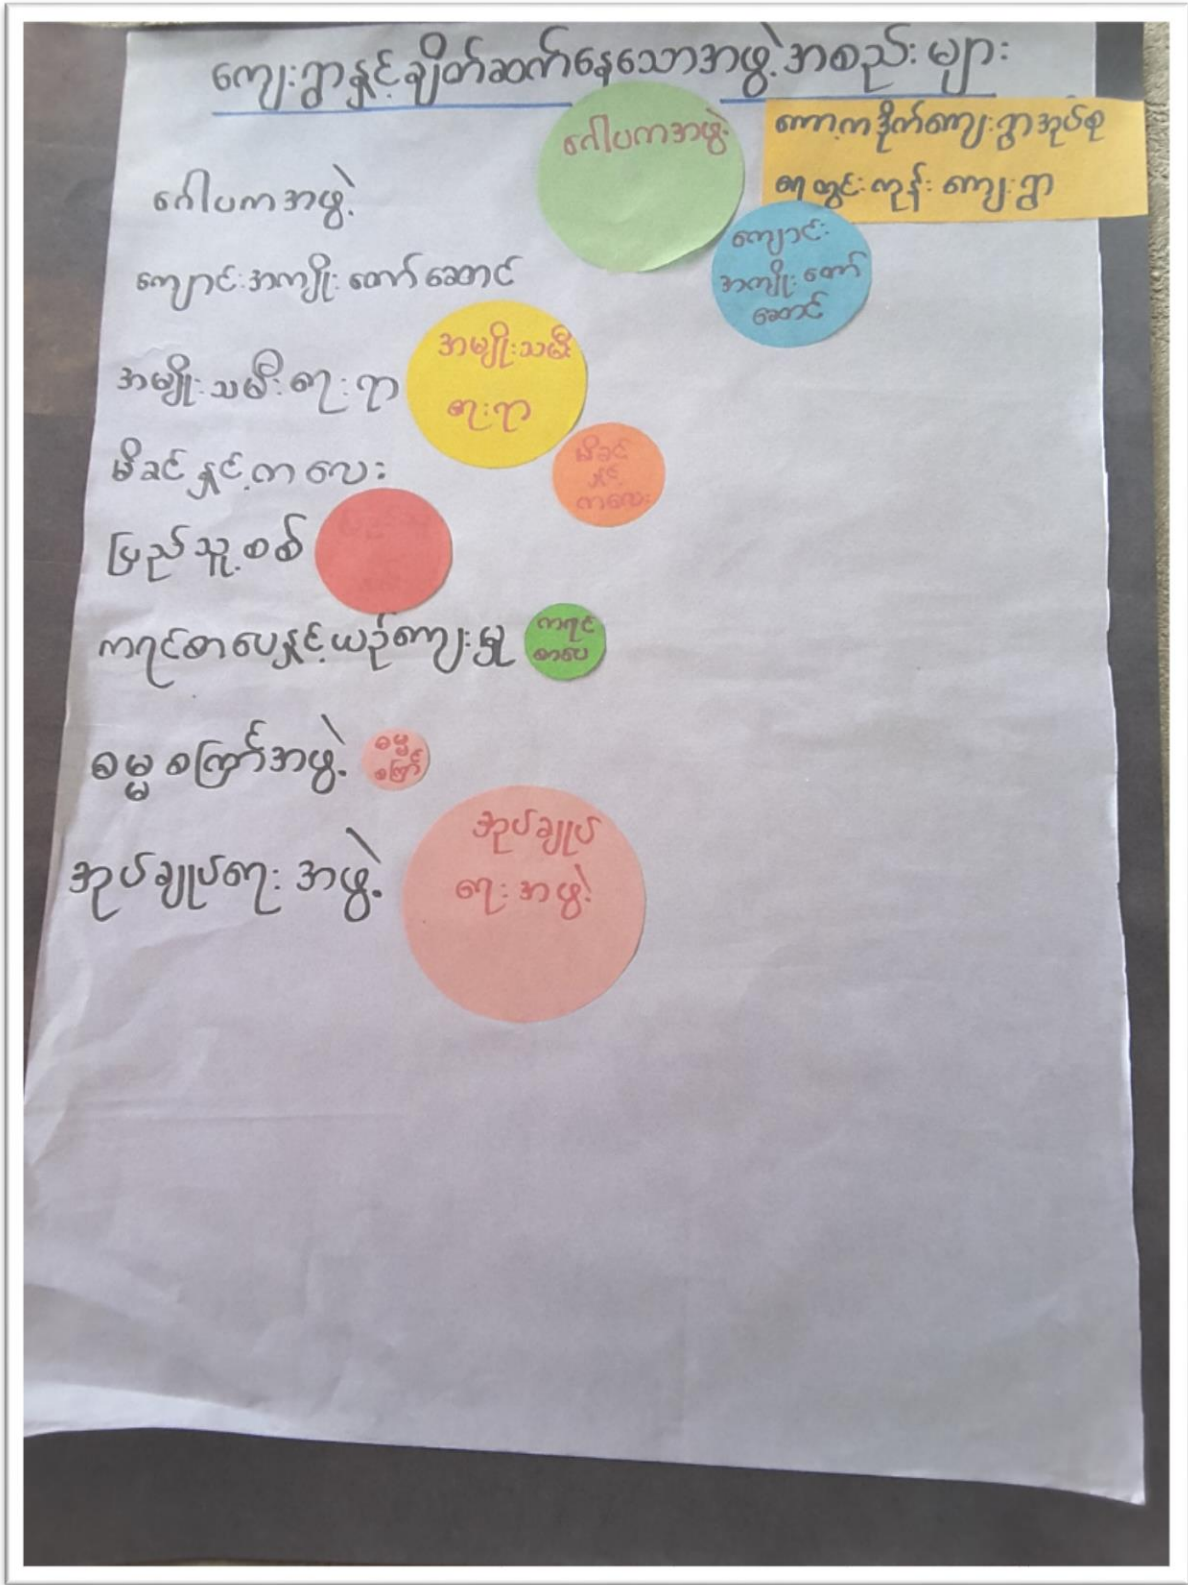 ကျေးရွာနှင့်ချိတ်ဆက်နေသောအဖွဲ့အစည်းများ
ကော့ကဒိုက်ကျေးရွာအုပ်စု
ရေတွင်းကုန်းကျေးရွာ
ဂေါပကအဖွဲ့
ဂေါပကအဖွဲ့
ကျောင်းအကျိုးတော်ဆောင်
ကျောင်း
အကျိုးတော်
ဆောင်
အမျိုးသမီးရေးရာ
အမျိုးသမီး
ရေးရာ
မိခင်နှင့်ကလေး
မိခင်
နှင့်
ကလေး
ပြည်သူ့စစ်
ကရင်စာပေနှင့်ယဉ်ကျေးမှု
ကရင်
စာပေ
ဓမ္မစကြာအဖွဲ့
ဓမ္မ
စကြာ
အုပ်ချုပ်ရေးအဖွဲ့
အုပ်ချုပ်
ရေးအဖွဲ့